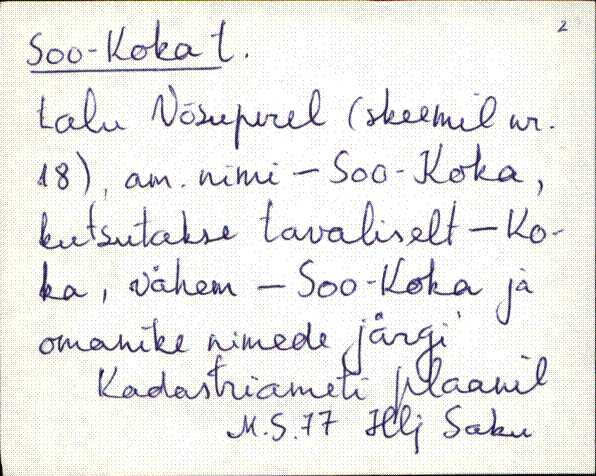 2
Soo-Koka t.
talu Võsuperel (skeemil nr.
18), am. nimi – Soo-Koka,
kutsutakse tavaliselt – Ko-
ka, vähem – Soo-Koka ja
omanike nimede järgi
Kadastriameti plaanil
M.S. 77 Hlj Saku